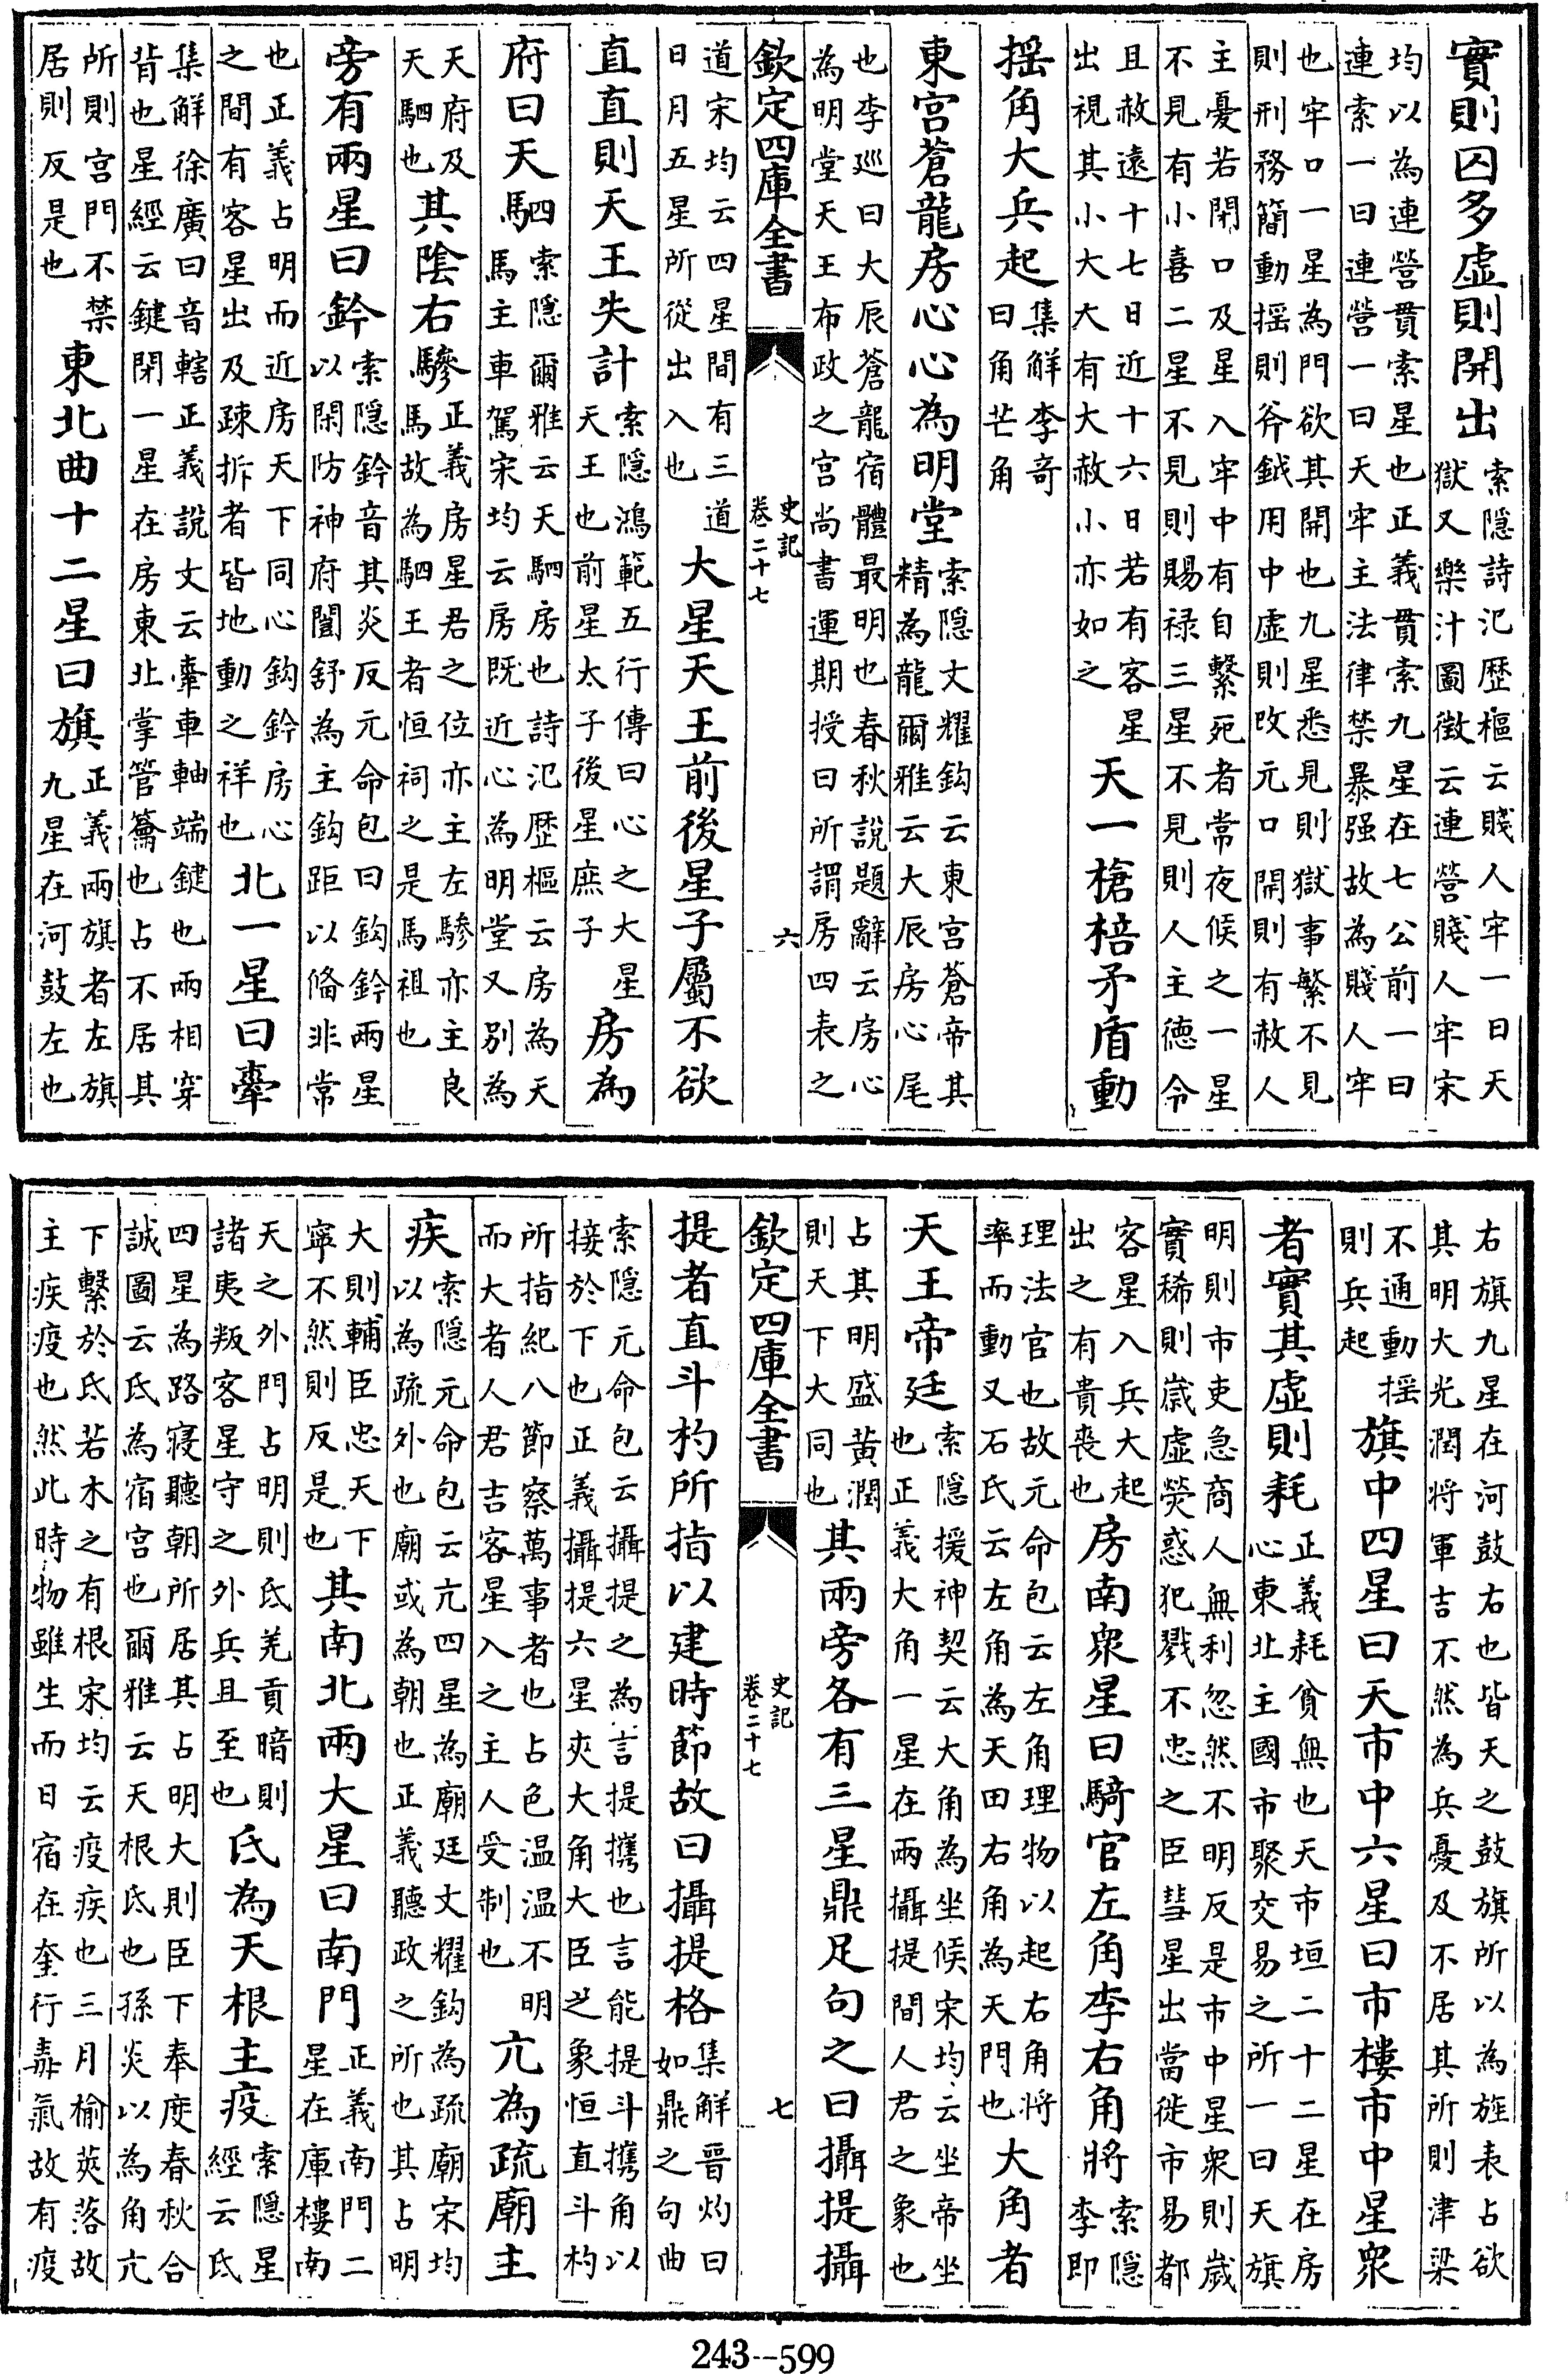 實則囚多虛則開出索隱詩氾歴樞云賤人牢一曰天獄又樂汁圖徵云連營賤人牢宋
均以為連營貫索星也正義貫索九星在七公前一曰連索一曰連營一曰天牢主法律禁暴强故為賤人牢
也牢口一星為門欲其開也九星悉見則獄事繁不見則刑務簡動揺則斧鉞用中虛則改元口開則有赦人
主憂若閉口及星入牢中有自繫死者常夜候之一星不見有小喜二星不見則賜禄三星不見則人主德令
且赦遠十七日近十六日若有客星出視其小大大有大赦小亦如之天一槍棓矛盾動
揺角大兵起集解李奇曰角芒角
東宫蒼龍房心心為明堂索隱文耀鈎云東宫蒼帝其精為龍爾雅云大辰房心尾
也李巡曰大辰蒼龍宿體最明也春秋說題辭云房心為明堂天王布政之宫尚書運期授曰所謂房四表之
欽定四庫全書 史記卷二十七 六
道宋均云四星間有三道日月五星所從出入也大星天王前後星子屬不欲
直直則天王失計索隱鴻範五行傳曰心之大星天王也前星太子後星庶子房為
府曰天駟索隱爾雅云天駟房也詩氾歴樞云房為天馬主車駕宋均云房既近心為明堂又別為
天府及天駟也其陰右驂正義房星君之位亦主左驂亦主良馬故為駟王者恒祠之是馬祖也
旁有兩星曰鈐索隱鈐音其炎反元命包曰鈎鈐兩星以閑防神府闓舒為主鈎距以備非常
也正義占明而近房天下同心鈎鈐房心之間有客星出及疎拆者皆地動之祥也北一星曰舝
集解徐廣曰音轄正義說文云舝車軸端鍵也兩相穿背也星經云鍵閉一星在房東北掌管籥也占不居其
所則宫門不禁居則反是也東北曲十二星曰旗正義兩旗者左旗九星在河鼓左也
右旗九星在河鼓右也皆天之鼓旗所以為旌表占欲其明大光潤將軍吉不然為兵憂及不居其所則津梁
不通動揺則兵起旗中四星曰天市中六星曰市樓市中星衆
者實其虛則耗正義耗貧無也天市垣二十二星在房心東北主國市聚交易之所一曰天旗
明則市吏急商人無利忽然不明反是市中星衆則歲實稀則歲虛熒惑犯戮不忠之臣彗星出當徙市易都
客星入兵大起出之有貴喪也房南衆星曰騎官左角李右角將索隱李即
理法官也故元命包云左角理物以起右角將率而動又石氏云左角為天田右角為天門也大角者
天王帝廷索隱援神契云大角為坐候宋均云坐帝坐也正義大角一星在兩攝提間人君之象也
占其明盛黄潤則天下大同也其兩旁各有三星鼎足句之曰攝提攝
欽定四庫全書 史記卷二十七 七
提者直斗杓所指以建時節故曰攝提格集解晋灼曰如鼎之句曲
索隱元命包云攝提之為言提攜也言能提斗攜角以接於下也正義攝提六星夾大角大臣之象恒直斗杓
所指紀八節察萬事者也占色温温不明而大者人君吉客星入之主人受制也亢為疏廟主
疾索隱元命包云亢四星為廟廷文耀鈎為疏廟宋均以為疏外也廟或為朝也正義聽政之所也其占明
大則輔臣忠天下寧不然則反是也其南北兩大星曰南門正義南門二星在庫樓南
天之外門占明則氐羌貢暗則諸夷叛客星守之外兵且至也氐為天根主疫索隱星經云氐
四星為路寢聽朝所居其占明大則臣下奉度春秋合誠圖云氐為宿宫也爾雅云天根氐也孫炎以為角亢
下繫於氐若木之有根宋均云疫疾也三月榆莢落故主疾疫也然此時物雖生而日宿在奎行毒氣故有疫
243--599